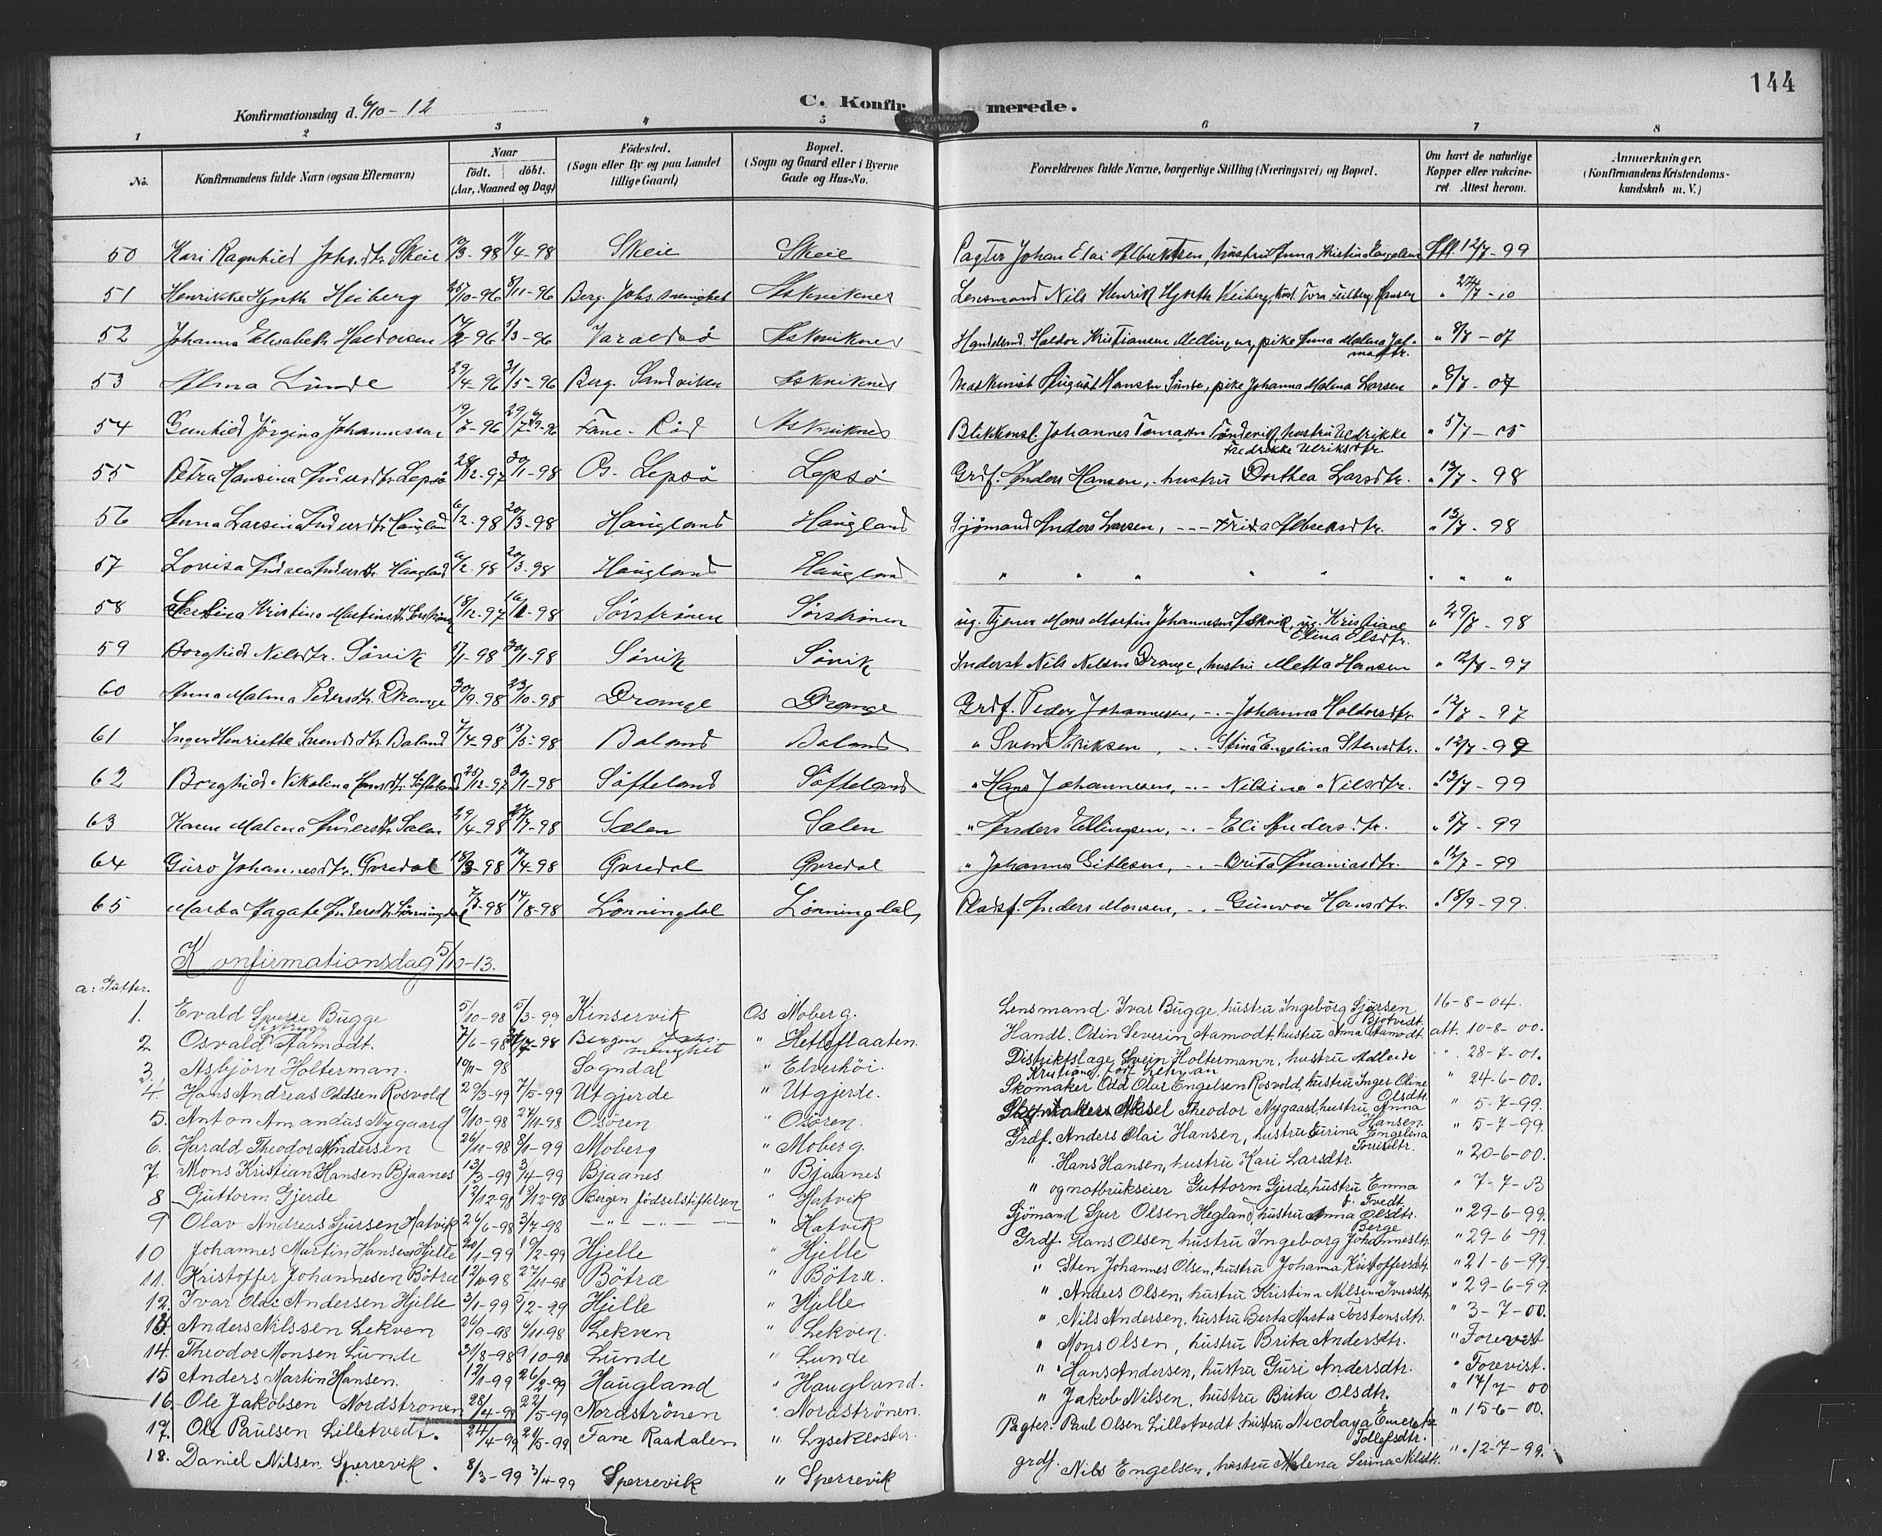 144
Konfirmationsdag d. 6/10 - 12
C. Konfirmerede.
1 2 3 4 5 6 7 8
No. Konfirmandens fulde Navn (ogsaa Efternavn) Naar født. døbt. (Aar, Maaned og Dag) Fødested. (Sogn eller By og paa Landet tillige Gaard) Bopæl. (Sogn og Gaard eller i Byerne Gade og Hus-No. Forældrenes fulde Navne, borgerlige Stilling (Næringsvei) og Bopæl. Om havt de naturlige Kopper eller vakcineret. Attest herom. Anmærkninger. (Konfirmandens Kristendomskundskab m. V.)
50 Kari Ragnhild Johsdtr. Skeie 98 4-98 Skeie Skeie Pagter Johan Elai Albriktsen, hustru Anna Kristina 12/7-99
51 Henrikke Hjorth Heiberg 10-96 8/11-96 Berg. Johs. menighet Askviknes Lensmand Nils Henrik Hjorth Heiberg, Tora Feilberg Hansen
52 Johanna Elisabeth Haldorsen 96 3-96 Varaldsö Askviknes Handelsmd. Haldor Kristiansen Mellingen, pike Anna Malena " 8/7-07
53 Alma Lunde 29/4-96 31/5-96 Berg. Sandviken Askviknes Maskinist August Hansen Lunde, pike Johanna Malena Larsen " 8/7-07
54 Gunhild Jörgina Johannessen 96 Fane - Röd Askviknes Blikkensl. Johannes hustru Fredrikke Ulriksdtr. " 5/7-05
55 Petra Hansina Andersdtr. Lepsö 12-97 30/1-98 Os. Lepsö Lepsö Grdf. Anders Hansen, hustru Dorthea Larsdtr. " 13/7-98
56 Anna Larsina Andersdtr. Haugland 6/2-98 20/3-98 Haugland Haugland Sjömand Anders Larsen, - - - " 13/7-98
57 Lovisa Andrea Andersdtr. Haugland 6/2-98 20/3-98 Haugland Haugland " " " " " " " "
58 Kristina Martinsdtr. Sörströnen 18/12-97 98 Sörströnen Sörströnen ug. Tjener Mons Martin Johannesen Askvik, ug. Kristiane Elina Olsdtr. " 98
59 Borghild Nilsdtr. Sövik 1-98 98 Sövik Sövik Inderst Nils Nilsen Drange, hustru Metta Hansen " 97
60 Anna Malena Pedersdtr. Drange 30/9-98 23/10-98 Drange Drange Grdf. Peder Johannesen, - - Johanna Haldorsdtr. " 12/7-97
61 Inger Henriette Svendsdtr. Baland 7/4-98 98 Baland Baland " Svend Eriksen, - - Stina Engelina Stensdtr. " 12/7-99
62 Borghild Nikolina Hansdtr. Söfteland 12-97 30/1-98 Söfteland Söfteland " Hans Johannesen, - - Nilsina Nilsdtr. " 13/7-99
63 Karen Malena Andersdtr. Salen 29/4-98 98 Salen Salen " Anders Ellingsen, - - Eli Andersdtr. " 5/7-99
64 Guro Johannesdtr. Gvredal 18/3-98 4-98 Gvredal Gvredal " Johannes Gitlesen, - - Brita Ananiasdtr. " 12/7-99
65 Marta Agate Andersdtr. Lönningdal 98 14/8-98 Lönningdal Lönningdal Pladsf. Anders Monsen, - - Gunvor Hansdtr. " 18/9-99.
Konfirmationsdag 5/10-13.
a: Gutter.
1. Evald Sverre Bugge 5/10-98 5/3-99 Kinservik Os Moberg. Lensmand Ivar Bugge, hustru Ingebörg Sjursen 16-8-04.
2 Osvald Aamodt. 7/6-98 98 Bergen Johs. menighet " Hetleflaaten. Handl. Odin Severin Aamodt, hustru Anna Aamodt. att. 10-8-00.
3. Asbjörn Holterman. 10/11-98 Sogndal " Elverhöi. Distriktslæge Svein Holtermann, hustru Adleide Kristiane " 28-7-01.
4. Hans Andreas Oddsen Rosvold 29/3-99 7/5-99 Utgjerde " Utgjerde. Skomaker Odd Olai Engelsen Rosvold, hustru Inger Oline Olsdtr. " 24-6-00.
5. Anton Amandus Nygaard 9/10-98 27/11-98 Osören " Osören. Aksel Theodor Nygaard, hustru Anna Hansen. " 5-7-99.
6. Harald Theodor Andersen 26/10-98 8/1-99 Moberg " Moberg. Grdf. Anders Olai Hansen, hustru Serina Engelina Torrisdtr. " 5-7-99.
7. Mons Kristian Hansen Bjaanes 13/3-99 3/4-99 Bjaanes " Bjaanes " Hans Hansen, hustru Kari Larsdtr. " 20-6-00.
8 Guttorm Gjerde 12-98 12-98 Bergen födselstiftelsen " Hatvik " og notbrukseier Guttorm Gjerde, hustru Emma f. Tvedt " 7-7-03
9 Olav Andreas Sjursen Hatvik 26/6-98 3/7-98 " Hatvik Sjömand Sjur Olsen Hegland, hustru Anna Olsdtr. " 29-6-99.
10 Johannes Martin Hansen Hjelle 20/1-99 19/2-99 Hjelle " Hjelle Grdf. Hans Olsen, hustru Ingeborg Johannesdtr. Berge " 29-6-99
11. Kristoffer Johannesen Bötræ 12/10-98 27/11-98 Bötræ " Bötræ. " Sten Johannes Olsen, hustru Johanna Kristoffersdtr. " 21-6-99.
12. Ivar Olai Andersen Hjelle 3/1-99 5/2-99 Hjelle " Hjelle " Anders Olsen, hustru Kristina Nilsina Iversdtr. " 29-6-99.
13. Anders Nilssen Lekven 26/9-98 6/11-98 Lekven " Lekven. " Nils Andersen, hustru Berta Marta Torstensdtr. " 3-7-00.
14. Theodor Monsen Lunde 31/8-98 9/10-98 Lunde " Lunde " Mons Olsen, hustru Brita Andersdtr. " Forevist
15 Anders Martin Hansen. 12/1-99 26/2-99 Haugland " Haugland. " Hans Andersen, hustru Guri Andersdtr. " Forevist.
16. Ole Jakobsen Nordströnen 28/4-99 22/5-99 Nordströnen " Nordströnen. " Jakob Nilsen, hustru Brita Olsdtr. " 17/7-00
17. Ole Paulsen Lilletvedt. 24/4-99 21/5-99 Fane Raadalen " Lysekloster. Pagter. Paul Olsen Lilletvedt, hustru Nicolaya Emerentze Tollefsdtr. " 15-6-00.
18. Daniel Nilsen Sperrevik. 8/3-99 3/4-99 Sperrevik " Sperrevik grdf. Nils Engelsen, hustru Malena Serina Nilsdtr. " 12-7-99.